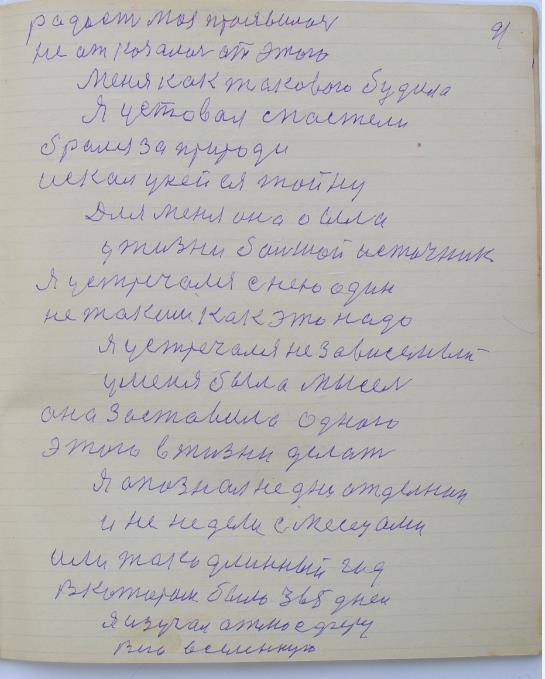 91
радост моя проявилас
не отказался от этого
меня как такового будила
Я уставал с мастели
брался за природи
искал у ней ся тайну
Для меня она о была
у жизни башой источник
Я устречался с нею один
не такии как это надо
Я устречался не зависемый
у меня была мысел
она заставила одного
этого в жизни делат
Я опознал не дни отделнии
и не недели с месецами
или такь длинный год
в катором было 365 дней
Я изучал атмосферу
всю вселенную